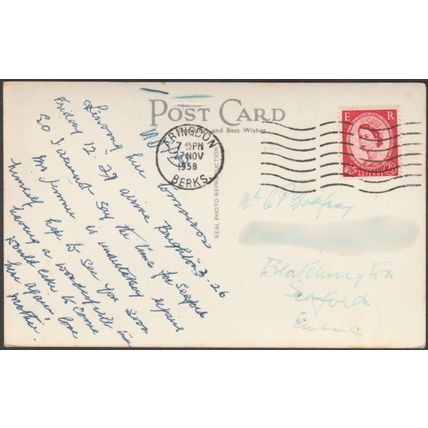 POST CARD
and Best Wishes
ABINGDON
7 15 PM
27 NOV
1958
BERKS.
E R
REAL PHOTO REPRODUCTION
Leaving here tomorrow
Friday 12.27 arrive 3.26
So I cannot say the time for Seaford
Mr Jimmie is
himself hope to see you soon
having a wonderful time
would like to come
here again.
Mother.
Mr C P Godfray
Blatchington
Seaford